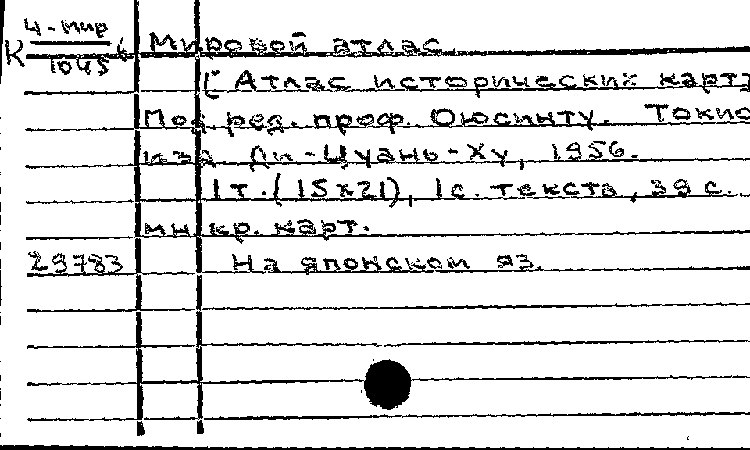 4-мир
К 1045 б Мировой атлас.
[Атлас исторических карт]
Под ред. проф. Оюсинту. Токио
изд. Ди-Цуань-Ху, 1956.
1 т. (15x21), 1 с. текста, 38 с.
мн кр. карт.
29783 На японском яз.